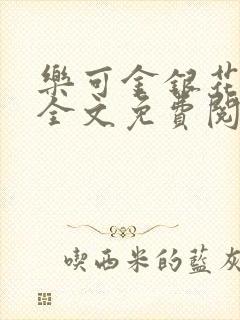 樂可金銀花
全文免費閱
喫西米的藍灰